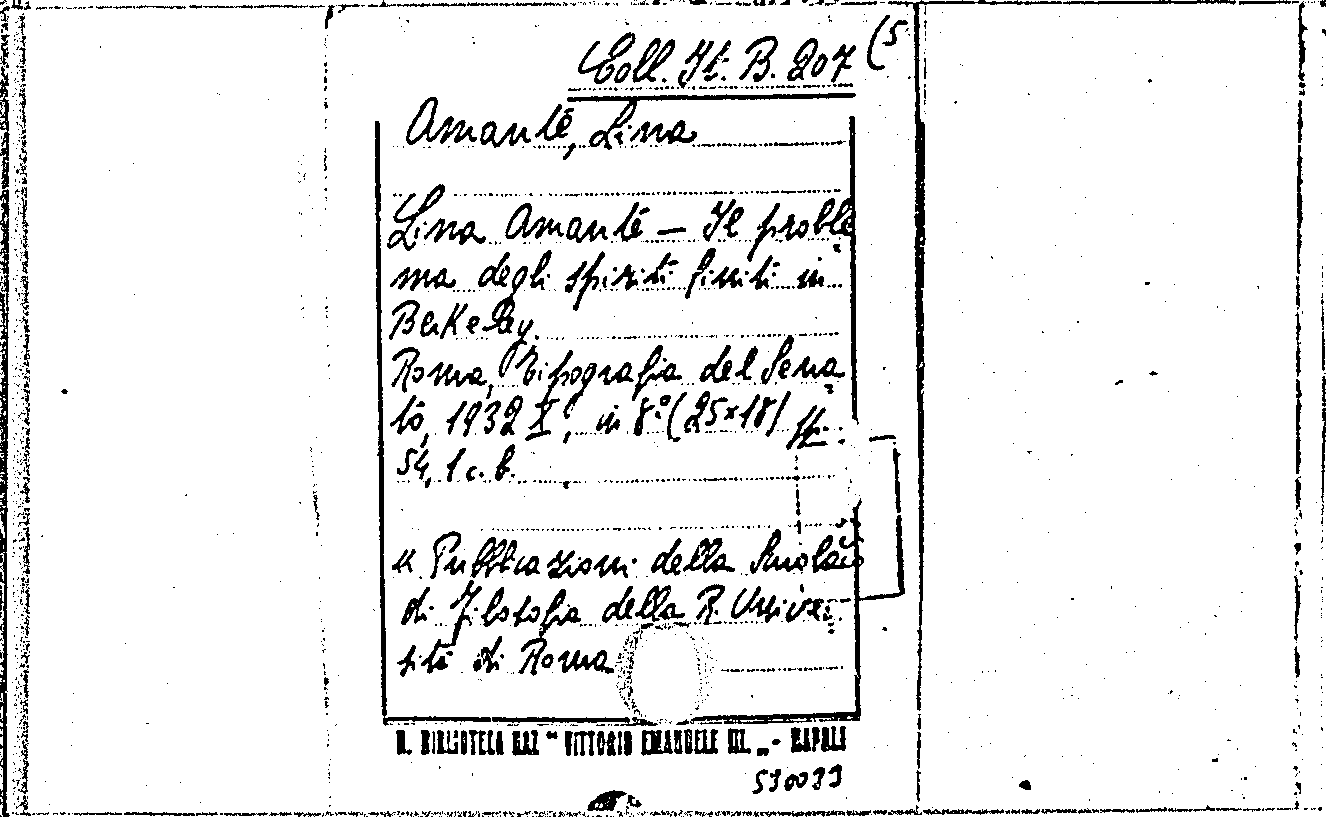 Coll. It. B. 207 (5
Amante, Lina
Lina Amante — Il proble
ma degli spiriti finiti in
Berkeley.
Roma, Tipografia del Sena
to, 1932 X, in 8° (25×18)
54, 1 c. b.
« Pubblicazioni della Scuola
di Filosofia della R. Univer
sità di Roma
R. BIBLIOTECA NAZ " VITTORIO EMANUELE III. „ - NAPOLI